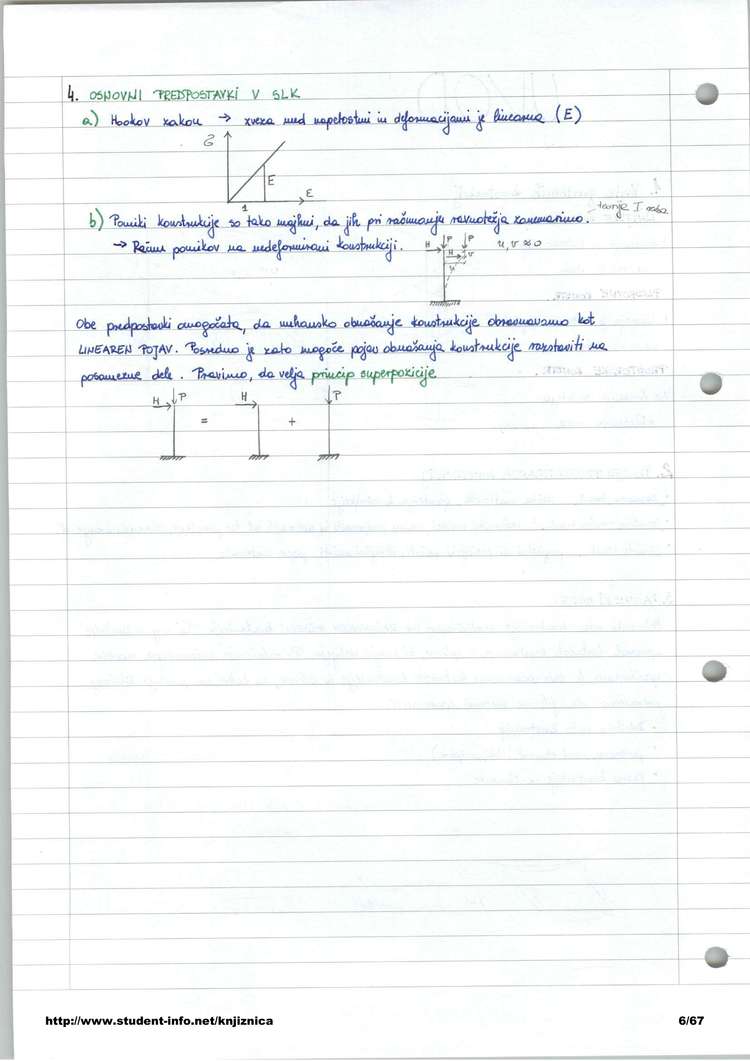 4. OSNOVNI PREDPOSTAVKI V SLK
a) Hookov zakon → zveza med napetostmi in deformacijami je linearna (E)
σ
E
1
ε
b) Pomiki konstrukcije so tako majhni, da jih pri računanju ravnotežja zanemarimo. teorije I reda
→ Račun pomikov na nedeformirani konstrukciji. H P H P v u u, v ≈ 0
Obe predpostavki omogočata, da mehansko obnašanje konstrukcije obravnavamo kot
LINEAREN POJAV. Posredno je zato mogoče pojav obnašanja konstrukcije razstaviti na
posamezne dele. Pravimo, da velja princip superpozicije
H P = H + P
http://www.student-info.net/knjiznica 6/67